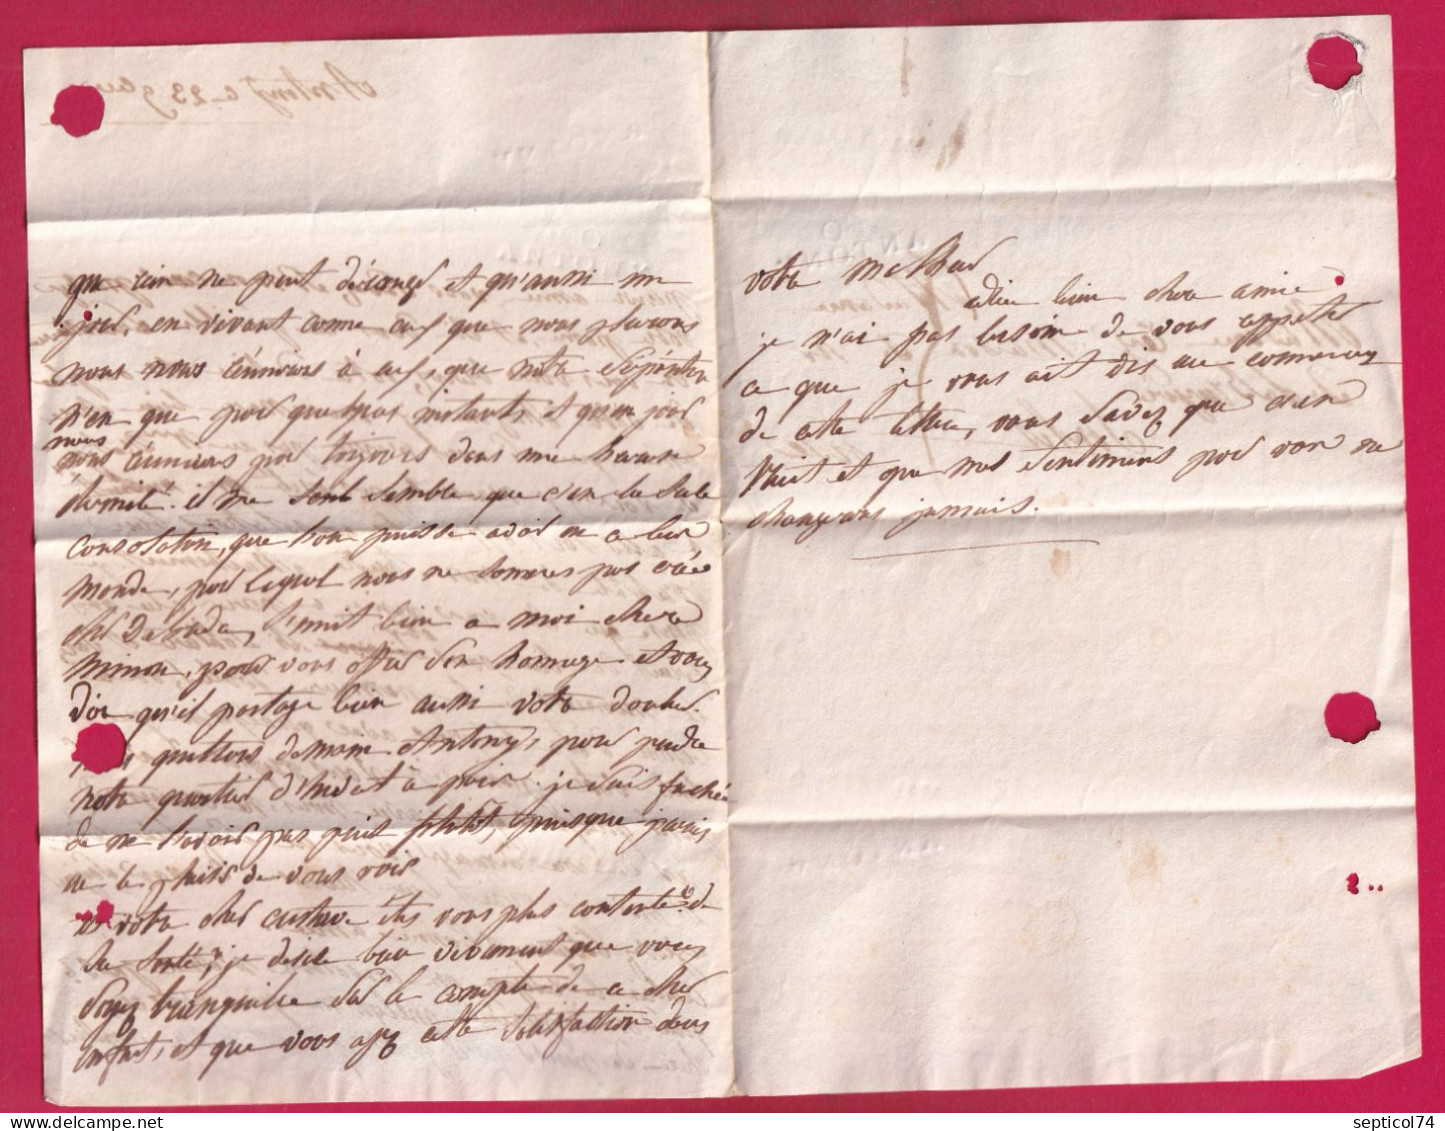 que rien ne peut déranger et qu'aussi un
jour, en vivant comme eux que nous pleurons
nous nous réunirons à eux, que notre séparation
n'en que pour quelques instants et qu'un jour
nous
nous réunirons pour toujours dans une heureuse
éternité. il me semble que c'en la seule
consolation, que l'on puisse avoir en ce bas
monde, pour lequel nous ne sommes pas créés
cher de s'unit bien a moi chere
Minon, pour vous offrir son homage et vous
dire qu'il partage bien aussi votre douleur.
quittons demain Antony, pour prendre
notre quartier d'hiver à paris. je suis fachée
de ne l'avoir pas pris plutot, puisque j'aurais
eu le plaisir de vous voir
et votre cher Gustave êtes vous plus contente de
sa santé, je desire bien vivement que vous
soyez tranquille sur le compte de ce cher
enfant, et que vous ayez cette satisfaction dans
votre malheur
adieu bien chere amie
je n'ai pas besoin de vous repeter
ce que je vous ait dis au commencement
de cette lettre, vous savez que c'en
vrai et que mes sentiments pour vous ne
changerons jamais.
Antony ce 23
septicol74